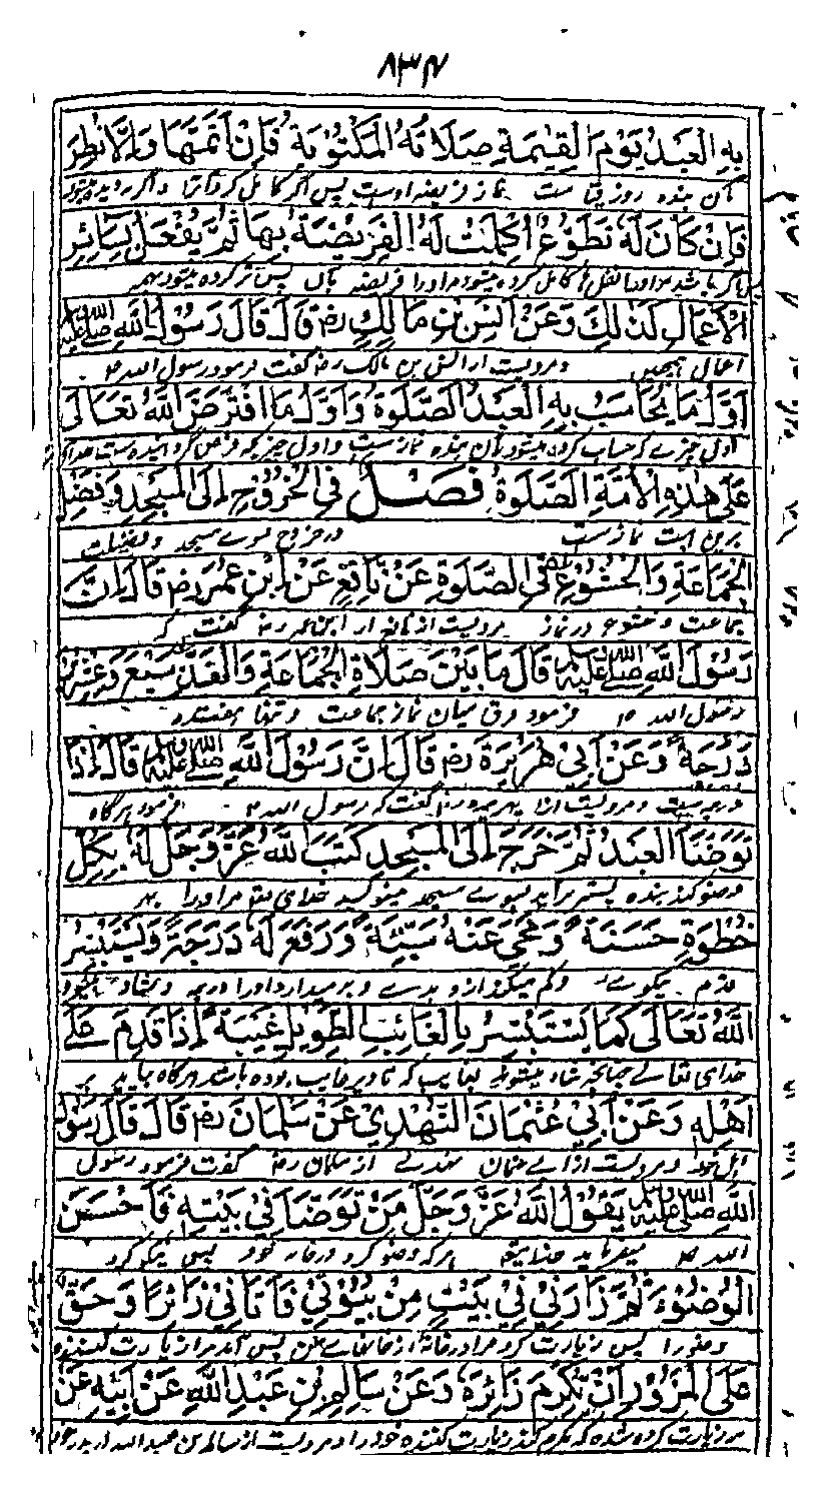 ۸۳۴
بِهِ الْعَبْدُ يَوْمَ الْقِيٰمَةِ صَلَاتُهُ الْمَكْتُوْبَةُ فَاِنْ اَتَمَّهَا وَاِلَّا نُظِرَ
بآن بنده روز قیامت نماز فریضه اوست پس اگر کامل کرد آنرا و اگر نه دیده میشود
فَاِنْ كَانَ لَهُ تَطَوُّعٌ اُكْمِلَتْ لَهُ الْفَرِيْضَةُ بِهَا ثُمَّ يُفْعَلُ بِسَائِرِ
پس اگر باشد مر او را نفل کامل کرده میشود مر او را فریضه بآن پس کرده میشود بهمه
الْاَعْمَالِ كَذٰلِكَ وَعَنْ اَنَسِ بْنِ مَالِكٍ رضـ قَالَ قَالَ رَسُوْلُ اللّٰهِ صلى الله عليه وسلم
اعمال همچنین و مرویست از انس بن مالک رضـ گفت فرمود رسول الله ص
اَوَّلُ مَا يُحَاسَبُ بِهِ الْعَبْدُ الصَّلٰوةُ وَاَوَّلُ مَا افْتَرَضَ اللّٰهُ تَعَالٰى
اول چیزے که حساب کرده میشود بآن بنده نماز ست و اول چیز که فرض گردانیده ست خدای
عَلٰى هٰذِهِ الْاُمَّةِ الصَّلٰوةُ فَصْلٌ فِي الْخُرُوْجِ اِلَى الْمَسْجِدِ وَفَضْلِ
برین امت نماز ست در خروج سوے مسجد و فضیلت
الْجَمَاعَةِ وَالْخُشُوْعِ فِي الصَّلٰوةِ عَنْ نَافِعٍ عَنْ اِبْنِ عُمَرَ رضـ قَالَ اِنَّ
جماعت و خشوع در نماز مرویست از نافع از ابن عمر رضـ گفت که
رَسُوْلَ اللّٰهِ صلى الله عليه وسلم قَالَ مَا بَيْنَ صَلَاةِ الْجُمَاعَةِ وَالْفَذِّ سَبْعٌ وَعِشْرُوْنَ
رسول الله ص فرمود فرق میان نماز جماعت و تنها هفتده
دَرَجَةً وَعَنْ اَبِيْ هُرَيْرَةَ رضـ قَالَ اِنَّ رَسُوْلَ اللّٰهِ صلى الله عليه وسلم قَالَ اِذَا
درجه ست و مرویست از ابا هریره رضـ گفت که رسول الله ص فرمود هر گاه
تَوَضَّأَ الْعَبْدُ ثُمَّ خَرَجَ اِلَى الْمَسْجِدِ كَتَبَ اللّٰهُ عَزَّ وَجَلَّ لَهُ بِكُلِّ
وضو کند بنده پستر برآید بسوے مسجد مینویسد خدای تعا مر او را بهر
خُطْوَةٍ حَسَنَةً وَمَحٰى عَنْهُ سَيِّئَةً وَرَفَعَ لَهُ دَرَجَةً وَيَسْتَبْشِرُ
قدم نیکوے و کم میکند ازو بدے و برمیدارد او را درجه و شاد میشود
اللّٰهُ تَعَالٰى كَمَا يَسْتَبْشِرُ بِالْغَائِبِ الطَّوِيْلِ غَيْبَةً اِذَا قَدِمَ عَلٰى
خدای تعالے چنانچه شاد میشود بغایب که تا دیر غایب بوده باشد هر گاه بیاید بر
اَهْلِهِ وَعَنْ اَبِيْ عُثْمَانَ النَّهْدِيْ عَنْ سَلْمَانَ رضـ قَالَ قَالَ رَسُوْلُ
اهل خود و مرویست از ابے عثمان نهدے از سلمان رضـ گفت فرمود رسول
اللّٰهِ صلى الله عليه وسلم يَقُوْلُ اللّٰهُ عَزَّ وَجَلَّ مَنْ تَوَضَّأَ فِيْ بَيْتِهِ فَاَحْسَنَ
الله ص میفرماید خدایتعا هر که وضو کرد در خانه خود پس نیکو کرد
الْوُضُوْءَ ثُمَّ زَارَنِيْ فِيْ بَيْتٍ مِنْ بُيُوْتِيْ فَاَتَانِيْ زَائِرًا وَحَقٌّ
وضو را پس زیارت کرد مرا در خانه از خانهاے من پس آمد مرا زیارت کننده
عَلَى الْمَزُوْرِ اَنْ يُكْرِمَ زَائِرَهُ وَعَنْ سَالِمِ بْنِ عَبْدِ اللّٰهِ عَنْ اَبِيْهِ عَنْ
بر زیارت کرده شده که مکرم کند زیارت کننده خود را و مرویست از سالم بن عبدالله از پدر خود